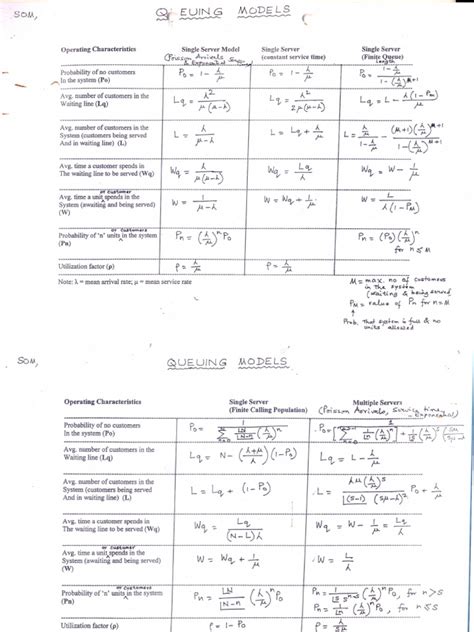 SOM,
QUEUING MODELS
Operating Characteristics | Single Server Model (Poisson Arrivals & Exponential Service) | Single Server (constant service time) | Single Server (Finite Queue) Length
Probability of no customers In the system (Po) | P₀ = 1 - λ/μ | P₀ = 1 - λ/μ | P₀ = (1 - λ/μ) / (1 - (λ/μ)^(M+1))
Avg. number of customers in the Waiting line (Lq) | Lq = λ² / μ(μ-λ) | Lq = λ² / 2μ(μ-λ) | Lq = L - λ(1-P_M)/μ
Avg. number of customers in the System (customers being served And in waiting line) (L) | L = λ / (μ-λ) | L = Lq + λ/μ | L = (λ/μ)/(1-λ/μ) - (M+1)(λ/μ)^(M+1) / (1-(λ/μ)^(M+1))
Avg. time a customer spends in The waiting line to be served (Wq) | Wq = λ / μ(μ-λ) | Wq = Lq/λ | Wq = W - 1/μ
Avg. time a unit or customer spends in the System (awaiting and being served) (W) | W = 1/(μ-λ) | W = Wq + 1/μ | W = L / λ(1-P_M)
Probability of 'n' units or customers in the system (Pn) | Pn = (λ/μ)ⁿ P₀ | Pn = (P₀)(λ/μ)ⁿ for n ≤ M
Utilization factor (ρ) | ρ = λ/μ | ρ = λ/μ
Note: λ = mean arrival rate; μ = mean service rate
M = max. no of customers
in the system
(waiting & being served)
P_M = value of Pn for n=M
Prob. that system is full & no
units allowed
SOM,
QUEUING MODELS
Operating Characteristics | Single Server (Finite Calling Population) | Multiple Servers (Poisson Arrivals, Service time - Exponential)
Probability of no customers In the system (Po)
Avg. number of customers in the Waiting line (Lq) | Lq = N - ((λ+μ)/λ)(1-P₀) | Lq = L - λ/μ
Avg. number of customers in the System (customers being served And in waiting line) (L) | L = Lq + (1-P₀) | L = λμ(λ/μ)^S / (|S-1 (Sμ-λ)²) P₀ + λ/μ
Avg. time a customer spends in The waiting line to be served (Wq) | Wq = Lq / (N-L)λ | Wq = W - 1/μ = Lq/λ
Avg. time a unit or customer spends in the System (awaiting and being served) (W) | W = Wq + 1/μ | W = L/λ
Probability of 'n' units or customers in the system (Pn) | Pn = |N / |N-n (λ/μ)ⁿ P₀ | Pn = 1/(|S S^(n-S)) (λ/μ)ⁿ P₀, for n>S
Pn = 1/|n (λ/μ)ⁿ P₀, for n≤S
Utilization factor (ρ) | ρ = 1 - P₀ | ρ = λ/Sμ